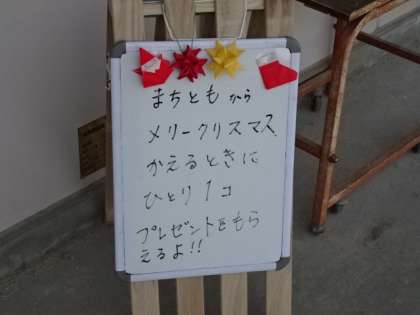 まちともから
メリークリスマス
かえるときに
ひとり1コ
プレゼントをもら
えるよ!!